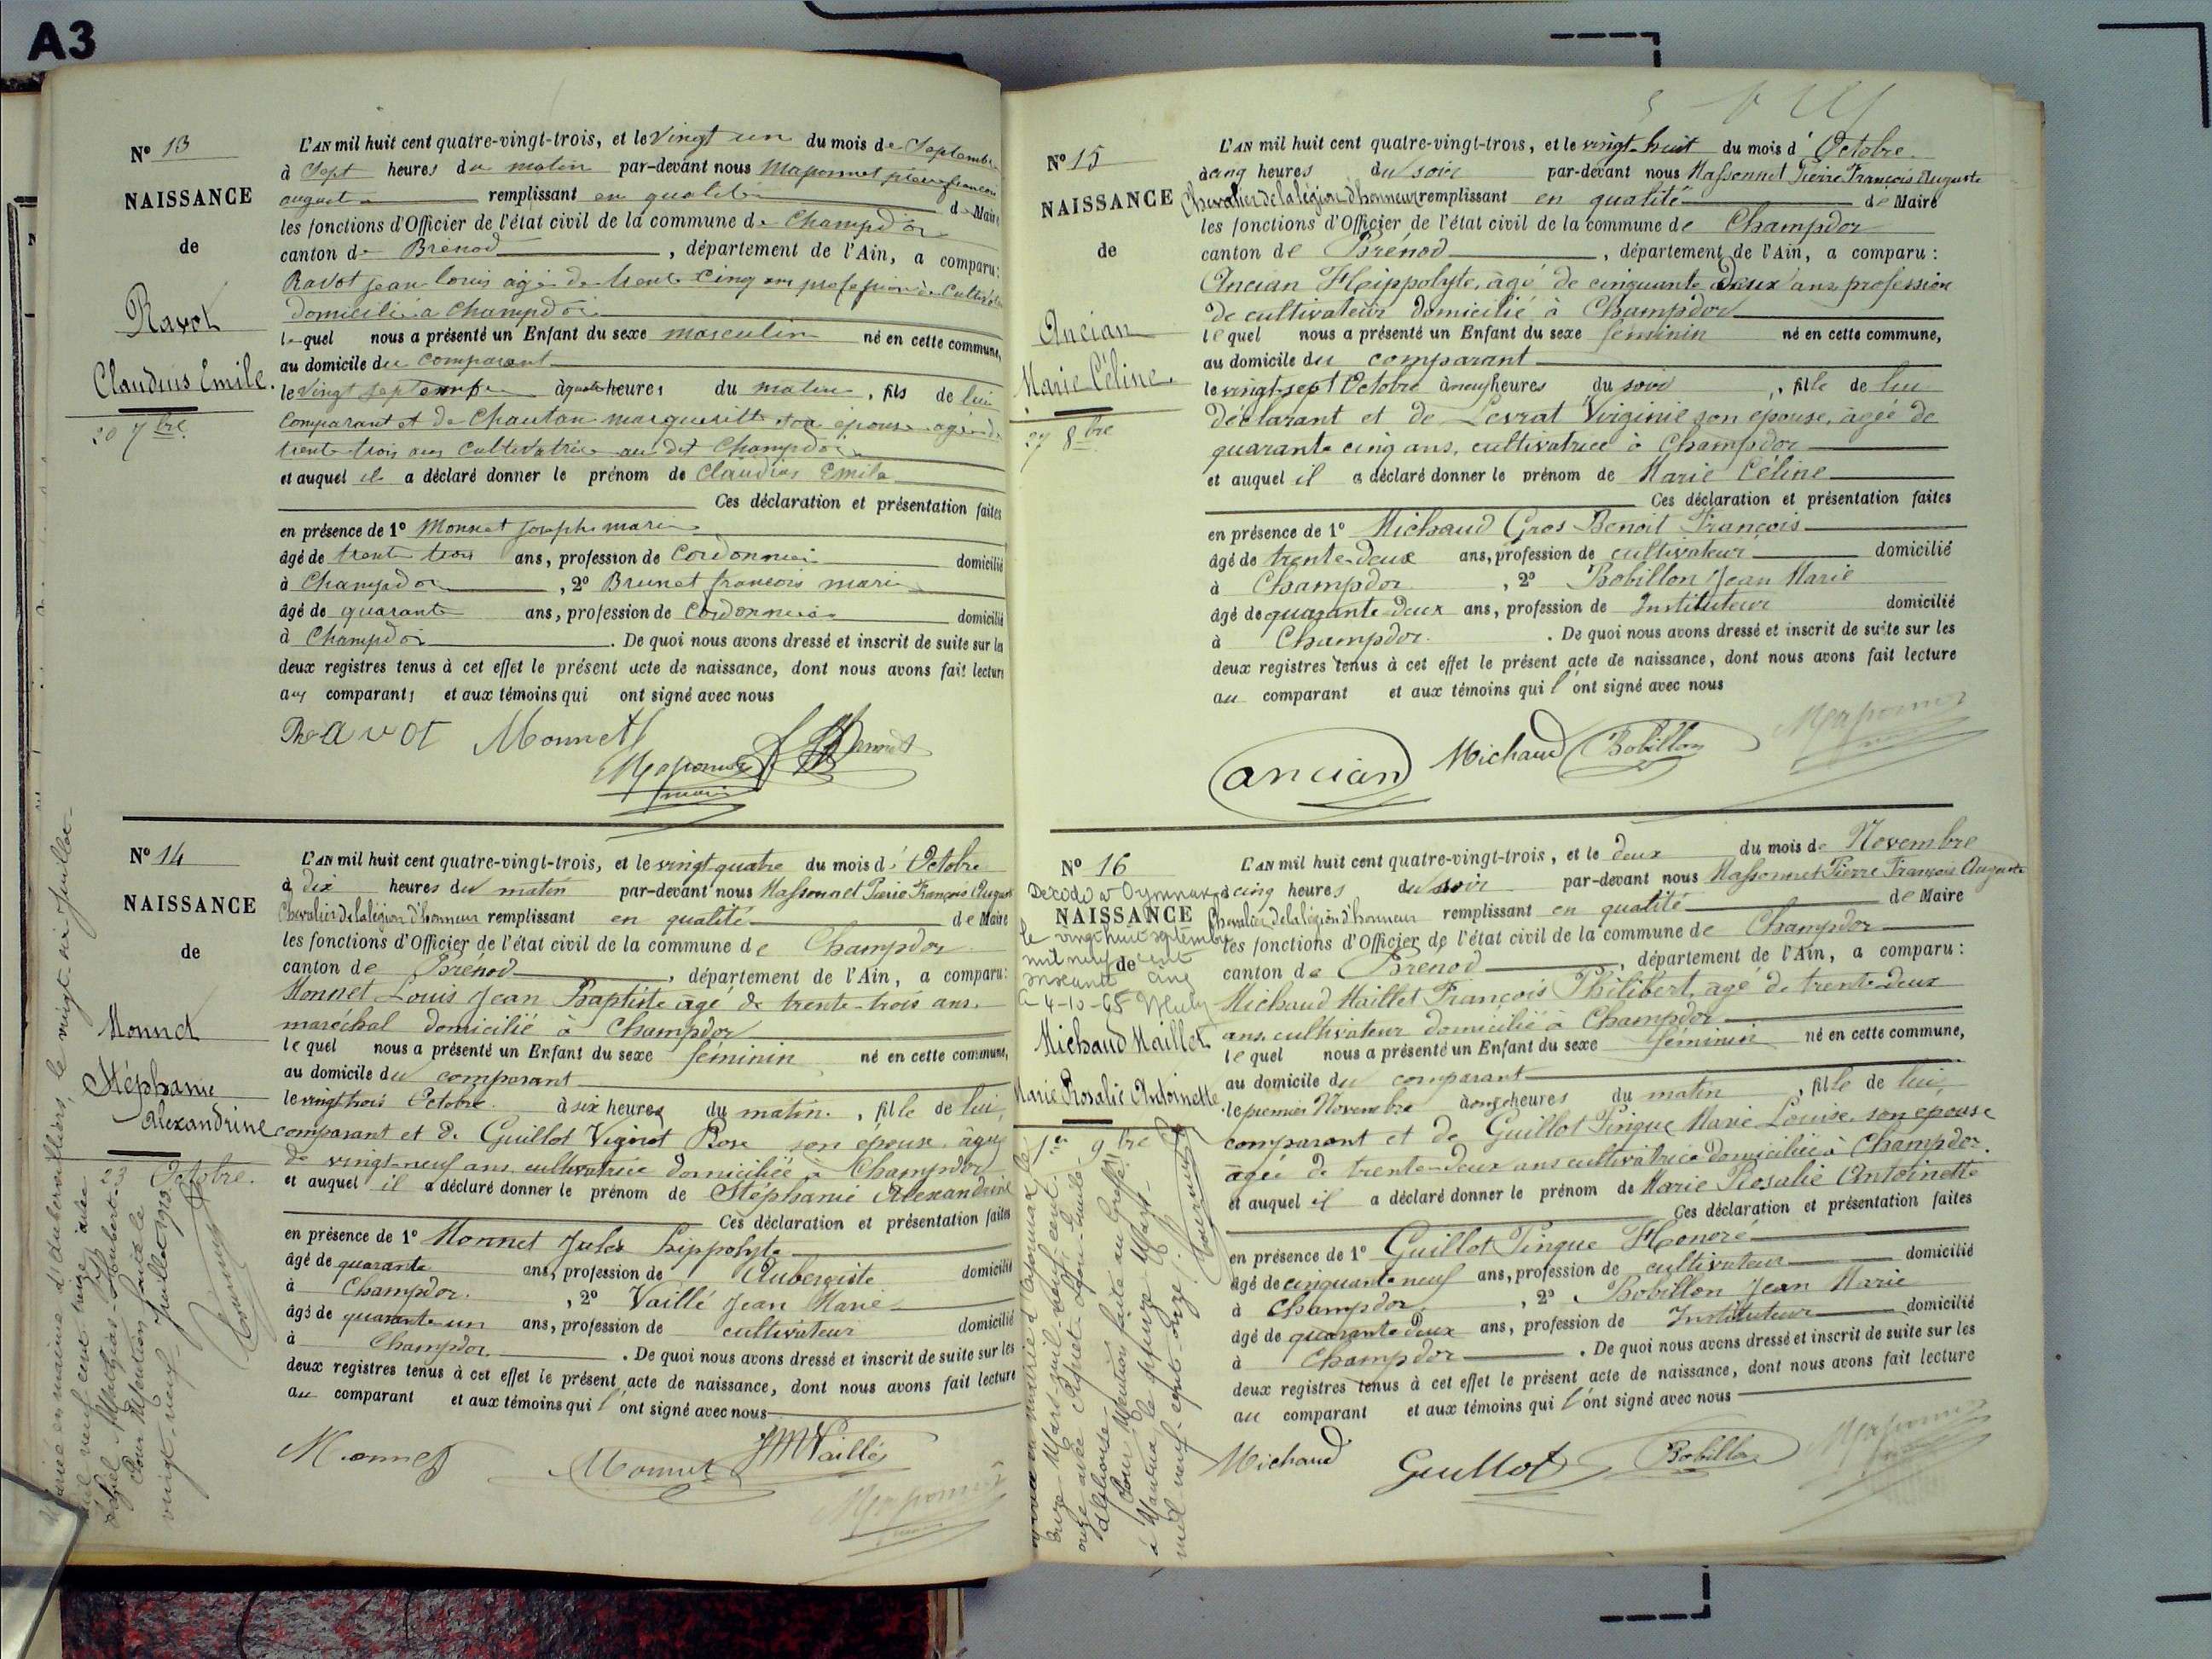 A3
N° 13
NAISSANCE
de
Ravot
Claudius Emile.
20 7bre
L'AN mil huit cent quatre-vingt-trois, et le Vingt un du mois de Septembre
à Sept heures du matin par-devant nous Massonnet pierre francois
august remplissant en qualité de Maire
les fonctions d'Officier de l'état civil de la commune de Champdor
canton de Brenod, département de l'Ain, a comparu:
Ravot jean louis agé de trente cinq ans profession de Cultivateur
domicilié à Champdor
lequel nous a présenté un Enfant du sexe masculin né en cette commune,
au domicile du comparant
le Vingt septembre à quatre heures du matin, fils de lui
comparant et de Chautan margueritte son épouse agée de
trente trois ans Cultivatrice au dit Champdor
et auquel il a déclaré donner le prénom de Claudius Emile
Ces déclaration et présentation faites
en présence de 1° Monnet Joseph marie
âgé de trente trois ans, profession de Cordonnier domicilié
à Champdor, 2° Brunet francois marie
âgé de quarante ans, profession de Cordonnier domicilié
à Champdor. De quoi nous avons dressé et inscrit de suite sur les
deux registres tenus à cet effet le présent acte de naissance, dont nous avons fait lecture
aux comparants et aux témoins qui ont signé avec nous
Ravot Monnet
Massonnet
maire
N° 14
NAISSANCE
de
Monnet
Stéphanie
Alexandrine
23 Octobre.
L'AN mil huit cent quatre-vingt-trois, et le vingt quatre du mois d'Octobre
à dix heures du matin par-devant nous Massonnet Pierre François Auguste
Chevalier de la légion d'honneur remplissant en qualité de Maire
les fonctions d'Officier de l'état civil de la commune de Champdor
canton de Brénod, département de l'Ain, a comparu:
Monnet Louis Jean Baptiste agé de trente-trois ans.
maréchal domicilié à Champdor
lequel nous a présenté un Enfant du sexe féminin né en cette commune,
au domicile du comparant
le vingt trois Octobre à six heures du matin, fille de lui,
comparant et de Guillot Vigoret Rose son épouse, âgée
de vingt-neuf ans, cultivatrice domiciliée à Champdor
et auquel il a déclaré donner le prénom de Stéphanie Alexandrine
Ces déclaration et présentation faites
en présence de 1° Monnet Jules hippolyte
âgé de quarante ans, profession de Aubergiste domicilié
à Champdor., 2° Vaillé Jean Marie
âgé de quarante un ans, profession de cultivateur domicilié
à Champdor. De quoi nous avons dressé et inscrit de suite sur les
deux registres tenus à cet effet le présent acte de naissance, dont nous avons fait lecture
au comparant et aux témoins qui l'ont signé avec nous
Monnet Monnet JMVaillé
Massonnet
Mariée en mairie d'Aubervilliers, le vingt-six juillet
mil neuf cent treize avec
Mathias Houbert.
Pour Mention faite le
vingt-neuf Juillet 1913
N° 15
NAISSANCE
de
Ancian
Marie Céline.
27 8bre
L'AN mil huit cent quatre-vingt-trois, et le vingt-huit du mois d'Octobre.
à cinq heures du soir par-devant nous Massonnet Pierre François Auguste
Chevalier de la légion d'honneur remplissant en qualité de Maire
les fonctions d'Officier de l'état civil de la commune de Champdor
canton de Brénod, département de l'Ain, a comparu:
Ancian Hippolyte, agé de cinquante deux ans profession
de cultivateur domicilié à Champdor
lequel nous a présenté un Enfant du sexe féminin né en cette commune,
au domicile du comparant
le vingt-sept Octobre à neuf heures du soir, fille de lui
déclarant et de Levrat Virginie son épouse, âgée de
quarante cinq ans, cultivatrice à Champdor
et auquel il a déclaré donner le prénom de Marie Céline
Ces déclaration et présentation faites
en présence de 1° Michaud Gros Benoit François
âgé de trente-deux ans, profession de cultivateur domicilié
à Champdor, 2° Bobillon Jean Marie
âgé de quarante-deux ans, profession de Instituteur domicilié
à Champdor. De quoi nous avons dressé et inscrit de suite sur les
deux registres tenus à cet effet le présent acte de naissance, dont nous avons fait lecture
au comparant et aux témoins qui l'ont signé avec nous
ancian Michaud Bobillon Massonnet
N° 16
NAISSANCE
de
Décédée à Oyonnax
le vingt huit septembre
mil neuf cent
soixante cinq
Le 4-10-65
Michaud Maillet
Marie Rosalie Antoinette
1er 9bre
L'AN mil huit cent quatre-vingt-trois, et le deux du mois de Novembre
à cinq heures du soir par-devant nous Massonnet Pierre François Auguste
Chevalier de la légion d'honneur remplissant en qualité de Maire
les fonctions d'Officier de l'état civil de la commune de Champdor
canton de Brénod, département de l'Ain, a comparu:
Michaud Maillet François Philibert, agé de trente-deux
ans, cultivateur domicilié à Champdor
lequel nous a présenté un Enfant du sexe féminin né en cette commune,
au domicile du comparant
le premier Novembre à onze heures du matin, fille de lui,
comparant et de Guillot Pingue Marie Louise son épouse
agée de trente-deux ans cultivatrice domiciliée à Champdor.
et auquel il a déclaré donner le prénom de Marie Rosalie Antoinette
Ces déclaration et présentation faites
en présence de 1° Guillot Pingue Honoré
âgé de cinquante neuf ans, profession de cultivateur domicilié
à Champdor, 2° Bobillon Jean Marie
âgé de quarante deux ans, profession de Instituteur domicilié
à Champdor. De quoi nous avons dressé et inscrit de suite sur les
deux registres tenus à cet effet le présent acte de naissance, dont nous avons fait lecture
au comparant et aux témoins qui l'ont signé avec nous
Michaud Guillot Bobillon Massonnet
en mairie d'Oyonnax le
onze Mars mil neuf cent
onze avec
Pour Mention faite au Greffe
à Nantua, le quinze Mars
mil neuf cent onze